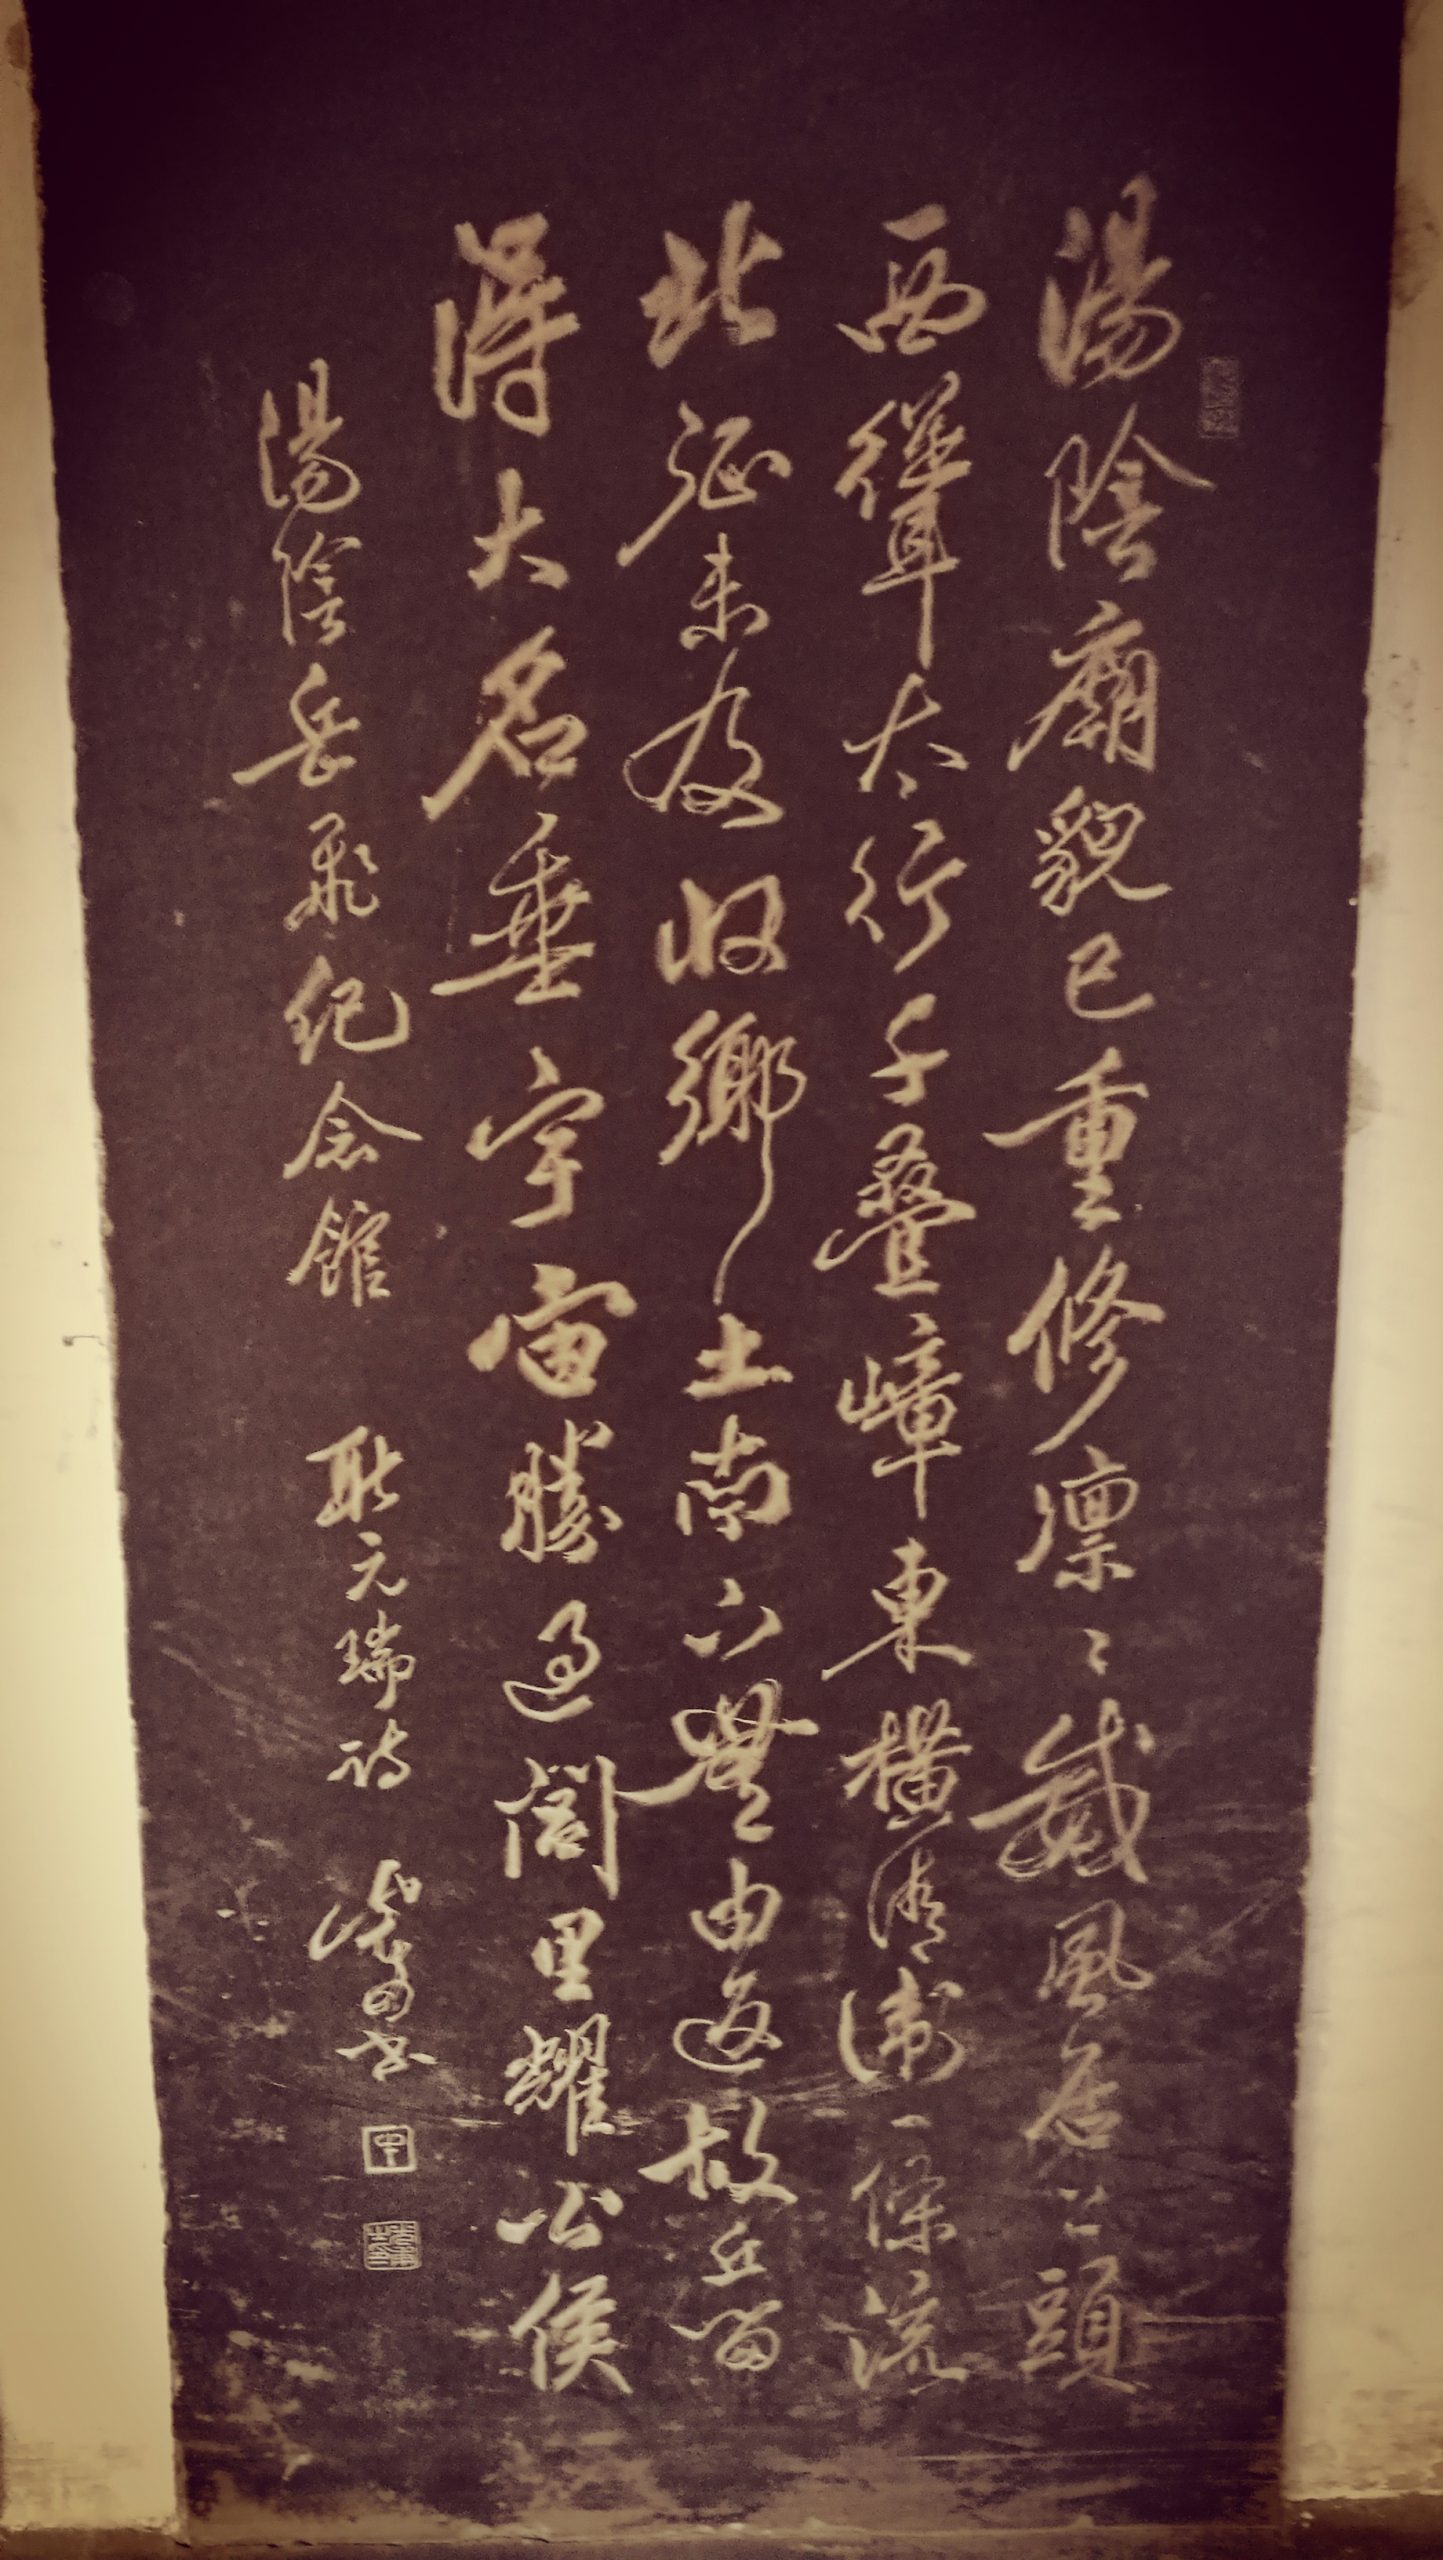 湯陰廟貌已重修凛〻威風居上頭
西聳太行千疊嶂東横清衛一條流
北征未及收鄉土南下無由返故丘留
得大名垂宇宙勝過閭里耀公侯
湯陰岳飛紀念館 耿元瑞詩 書